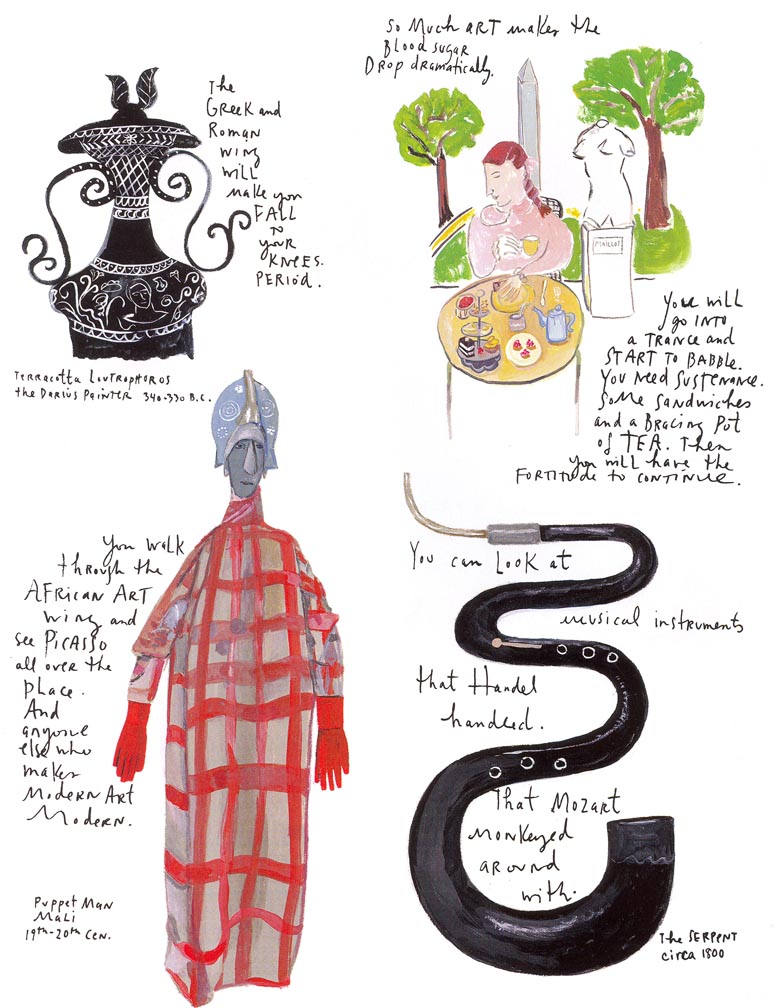 The
GREEK and
ROMAN
wing
will
make you
FALL
to
your
KNEES.
PERIOD.
Terracotta Loutrophoros
the Darius Painter 340-330 B.C.
So Much ART makes the
Blood sugar
Drop dramatically.
MAILLOL
You will
go INTO
a TRANCE and
START TO BABBLE.
You Need Sustenance.
Some Sandwiches
and a Bracing Pot
of TEA. Then
you will have the
FORTITUDE to CONTINUE.
You walk
through the
AFRICAN ART
wing and
see PICASSO
all over the
place.
And
anyone
else who
makes
Modern Art
Modern.
Puppet Man
Mali
19th-20th Cen.
You can Look at
musical instruments
that Handel
handled.
That MOZART
monkeyed
around
with.
The SERPENT
circa 1800